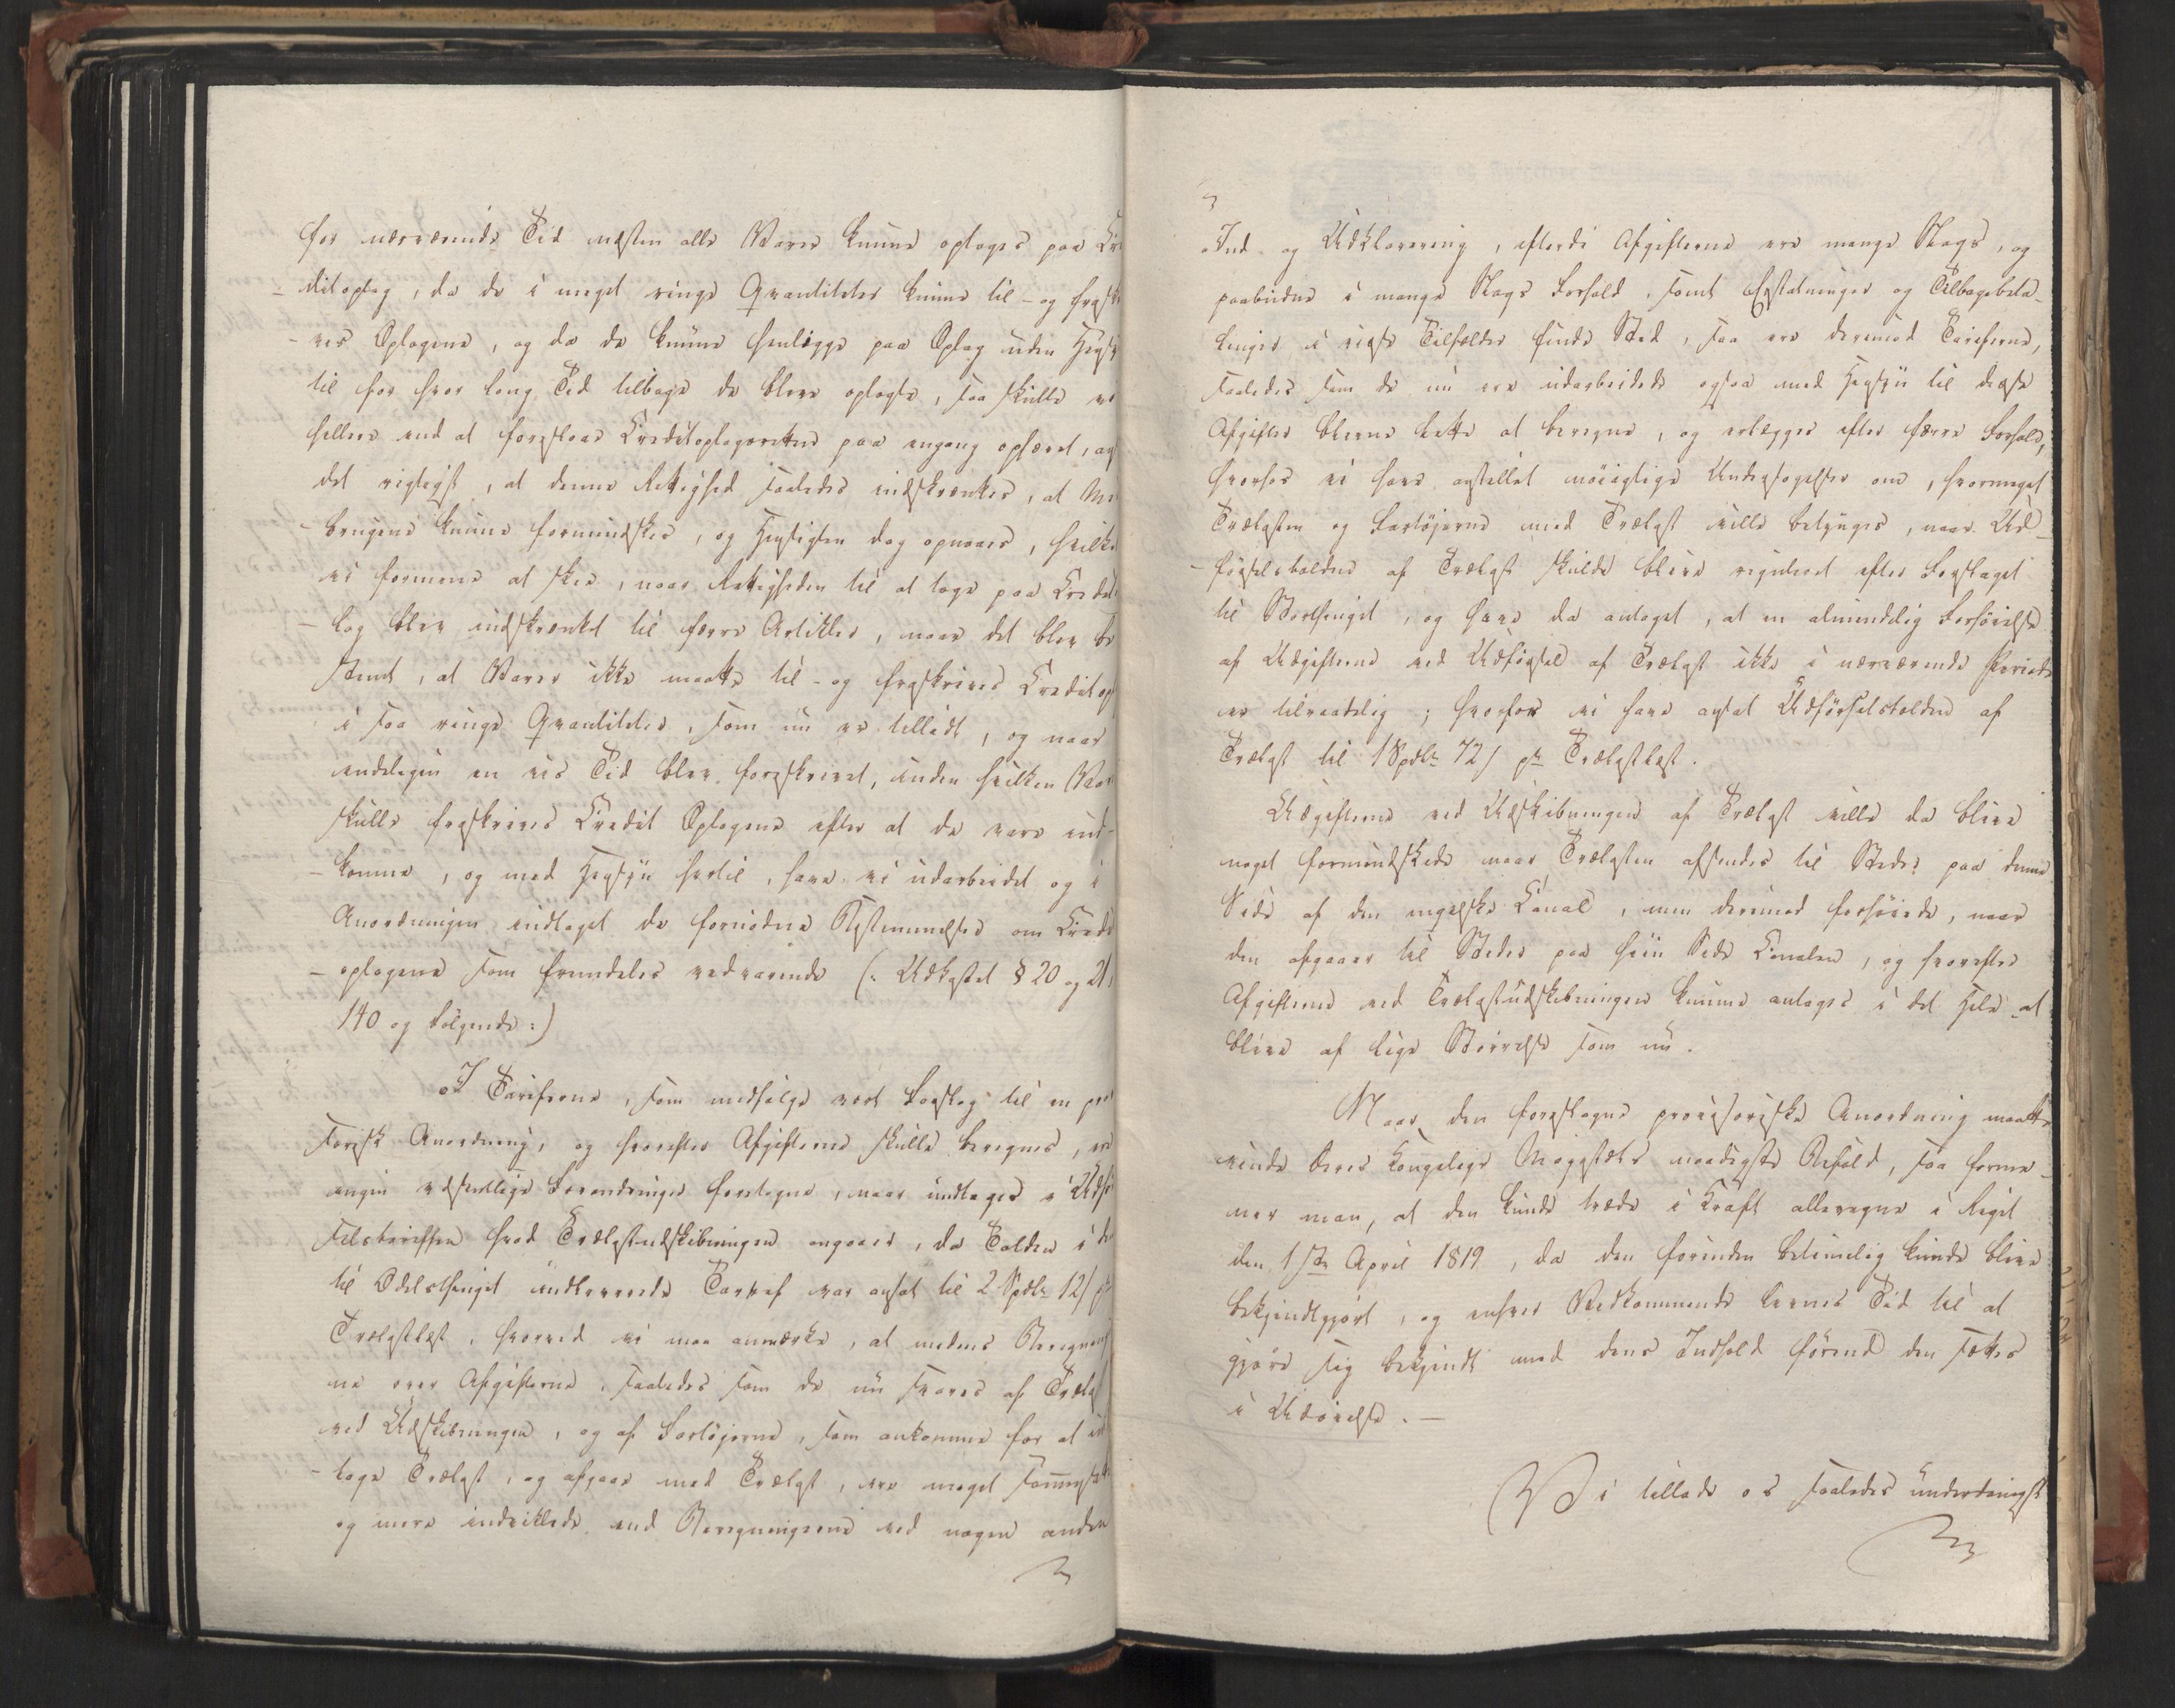 for nærværende Tid næsten alle Varer kunne oplages paa Cre
ditoplag, da de i meget ringe Qvantiteter kunne til- og fraskri
ves Oplagene, og da de kunne henlægge paa Oplag uden Hensyn
til for hvor lang Tid tilbage de bleve oplagte, saa skulle vi
hellere end at foreslaae Creditoplagsretten paa engang ophævet, ans
det rigtigst, at denne Rettighed saaledes indskrænkes, at Mis
brugene kunne formindskes, og Hensigten dog opnaaes, hvilket
vi formene at skee, naar Rettigheden til at tage paa Credit
lag blev indskrænket til færre Artikler, naar det blev be
stemt, at Varer ikke maatte til- og fraskrives Creditopl
i saa ringe Qvantiteter, som nu er tilladt, og naar
endeligen en vis Tid blev foreskrevet, inden hvilken Var
skulle fraskrives Credit Oplagene efter at de vare ind-
komne, og med Hensyn hertil, have vi udarbeidet og i
Anordningen indtaget de fornødne Bestemmelser om Credit
oplagene som fremdeles vedvarende (: Udkastet § 20 og 21,
140 og følgende :)
I Tarifferne, som medfølge vort Forslag til en provi
sorisk Anordning, og hvorefter Afgifterne skulle beregnes, ere
ingen væsentlige Forandringer foretagne, naar undtages i Udfør
selstariffen hvad Trælastudskibningen angaaer, da Tolden i den
til Odelsthinget indleverede Tarif var ansat til 2 Spdlr 12 s pr
Trælastlæst, hvorved vi maa anmærke, at medens Beregninger
ne over Afgifterne, saaledes som de nu svares af Trælast
ved Udskibningen, og af Fartøjerne, som ankomme for at ind
tage Trælast, og afgaae med Trælast, ere meget sammensatte
og mere indviklede end Beregningerne ved nogen anden
Ind- og Udklarering, efterdi Afgifterne ere mange Slags, og
paabudne i mange Slags Forhold, samt Erstatninger og Tilbagebeta-
linger i visse Tilfælde finde Sted, saa ere derimod Tarifferne,
saaledes som de nu ere udarbeidede ogsaa med Hensyn til disse
Afgifter blevne lette at beregne, og erlægges efter færre Forhold,
hvorfor vi have anstillet nøiagtige Undersøgelser om, hvormeget
Trælasten og Fartøjerne med Trælast ville betynges, naar Ud-
førselstolden af Trælast skulde blive reguleret efter Forslaget
til Storthinget, og have da antaget, at en almindelig Forhøielse
af Udgifterne ved Udførsel af Trælast ikke i nærværende Periode
er tilraadelig; hvorfor vi have ansat Udførselstolden af
Trælast til 1 Spdlr 72 s pr Trælastlæst.
Udgifterne ved Udskibningen af Trælast ville da blive
noget formindskede naar Trælasten afsendes til Steder paa denne
Side af den engelske Canal, men derimod forhøiede, naar
den afgaaer til Steder paa hiin Side Canalen, og hvorefter
Afgifterne ved Trælastudskibningen kunne antages i det Hele at
blive af lige Størrelse som nu.
Naar den foreslagne provisoriske Anordning maatte
vinde Deres Kongelige Majestæts naadigste Bifald, saa forme-
ner man, at den kunde træde i Kraft allevegne i Riget
den 1ste April 1819, da den forinden betimelig kunde blive
bekjendtgjort, og enhver Vedkommende levnes Tid til at
gjøre sig bekjendt med dens Indhold førend den sættes
i Udøvelse. —
Vi tillade os saaledes underdanigst